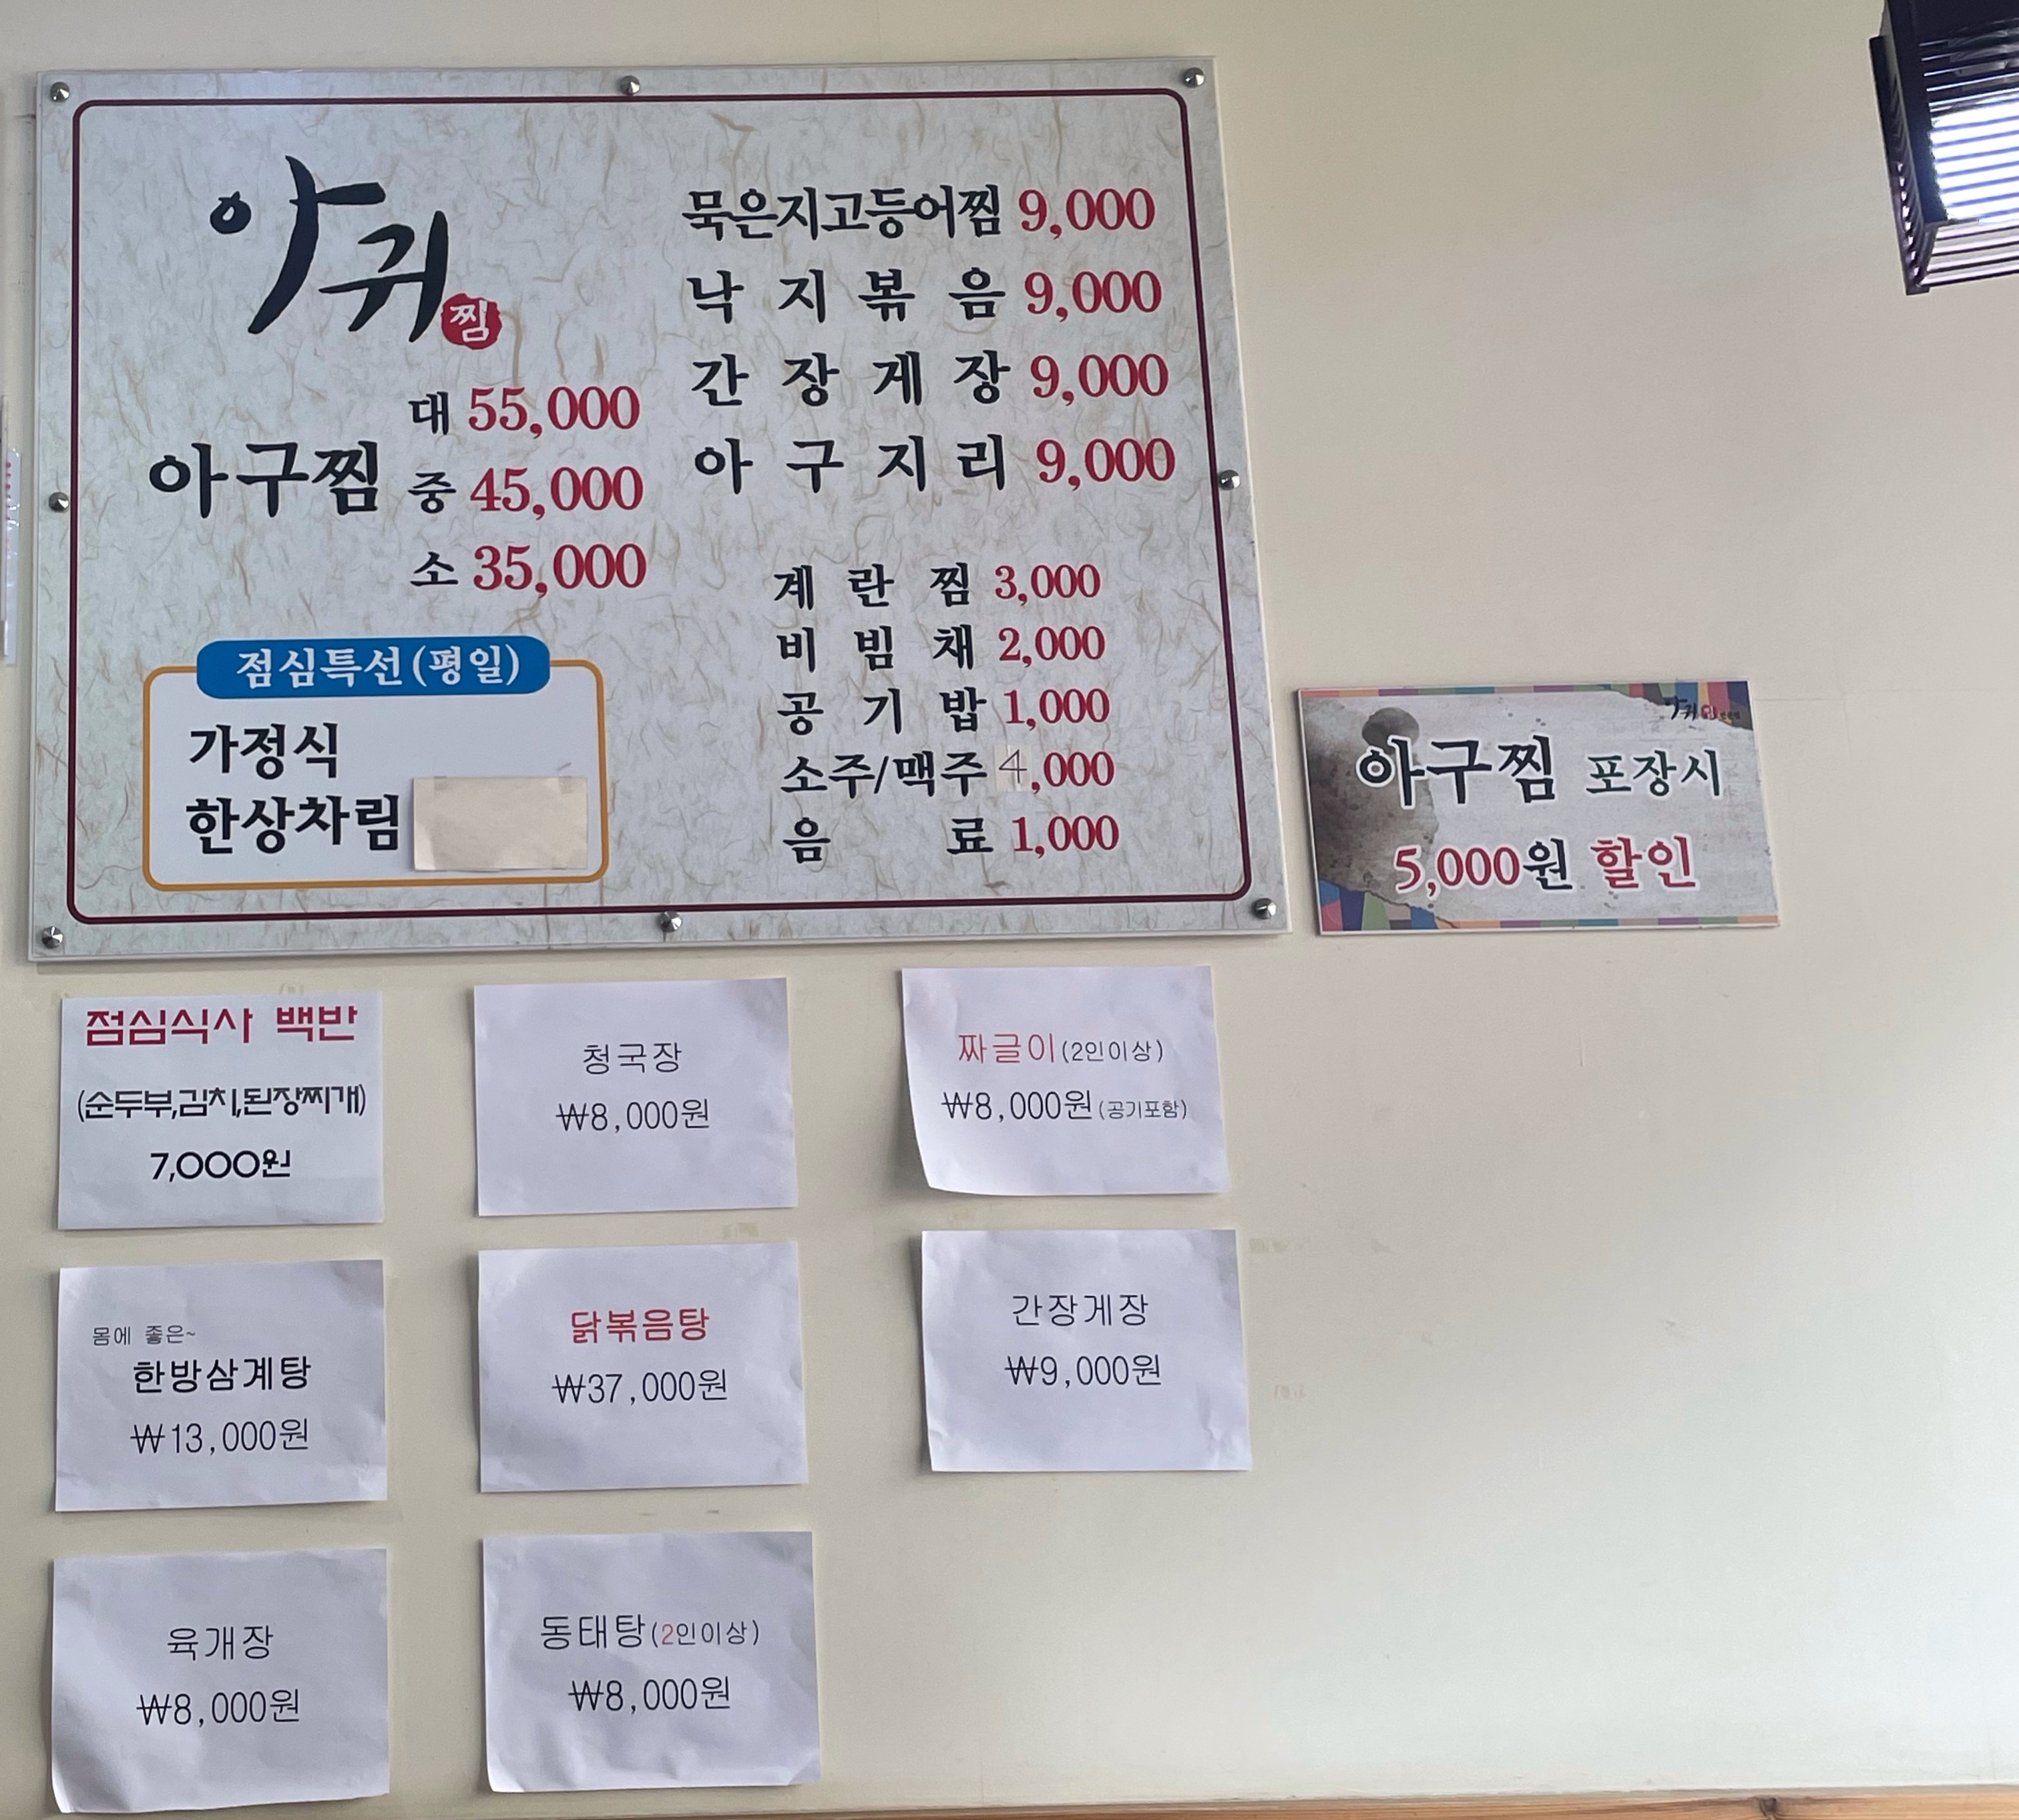 아귀찜
아구찜
대 55,000
중 45,000
소 35,000
점심특선(평일)
가정식
한상차림
묵은지고등어찜 9,000
낙지볶음 9,000
간장게장 9,000
아구지리 9,000
계란찜 3,000
비빔채 2,000
공기밥 1,000
소주/맥주 4,000
음료 1,000
아구찜 포장시
5,000원 할인
점심식사 백반
(순두부,김치,된장찌개)
7,000원
청국장
₩8,000원
짜글이(2인이상)
₩8,000원(공기포함)
몸에 좋은~
한방삼계탕
₩13,000원
닭볶음탕
₩37,000원
간장게장
₩9,000원
육개장
₩8,000원
동태탕(2인이상)
₩8,000원